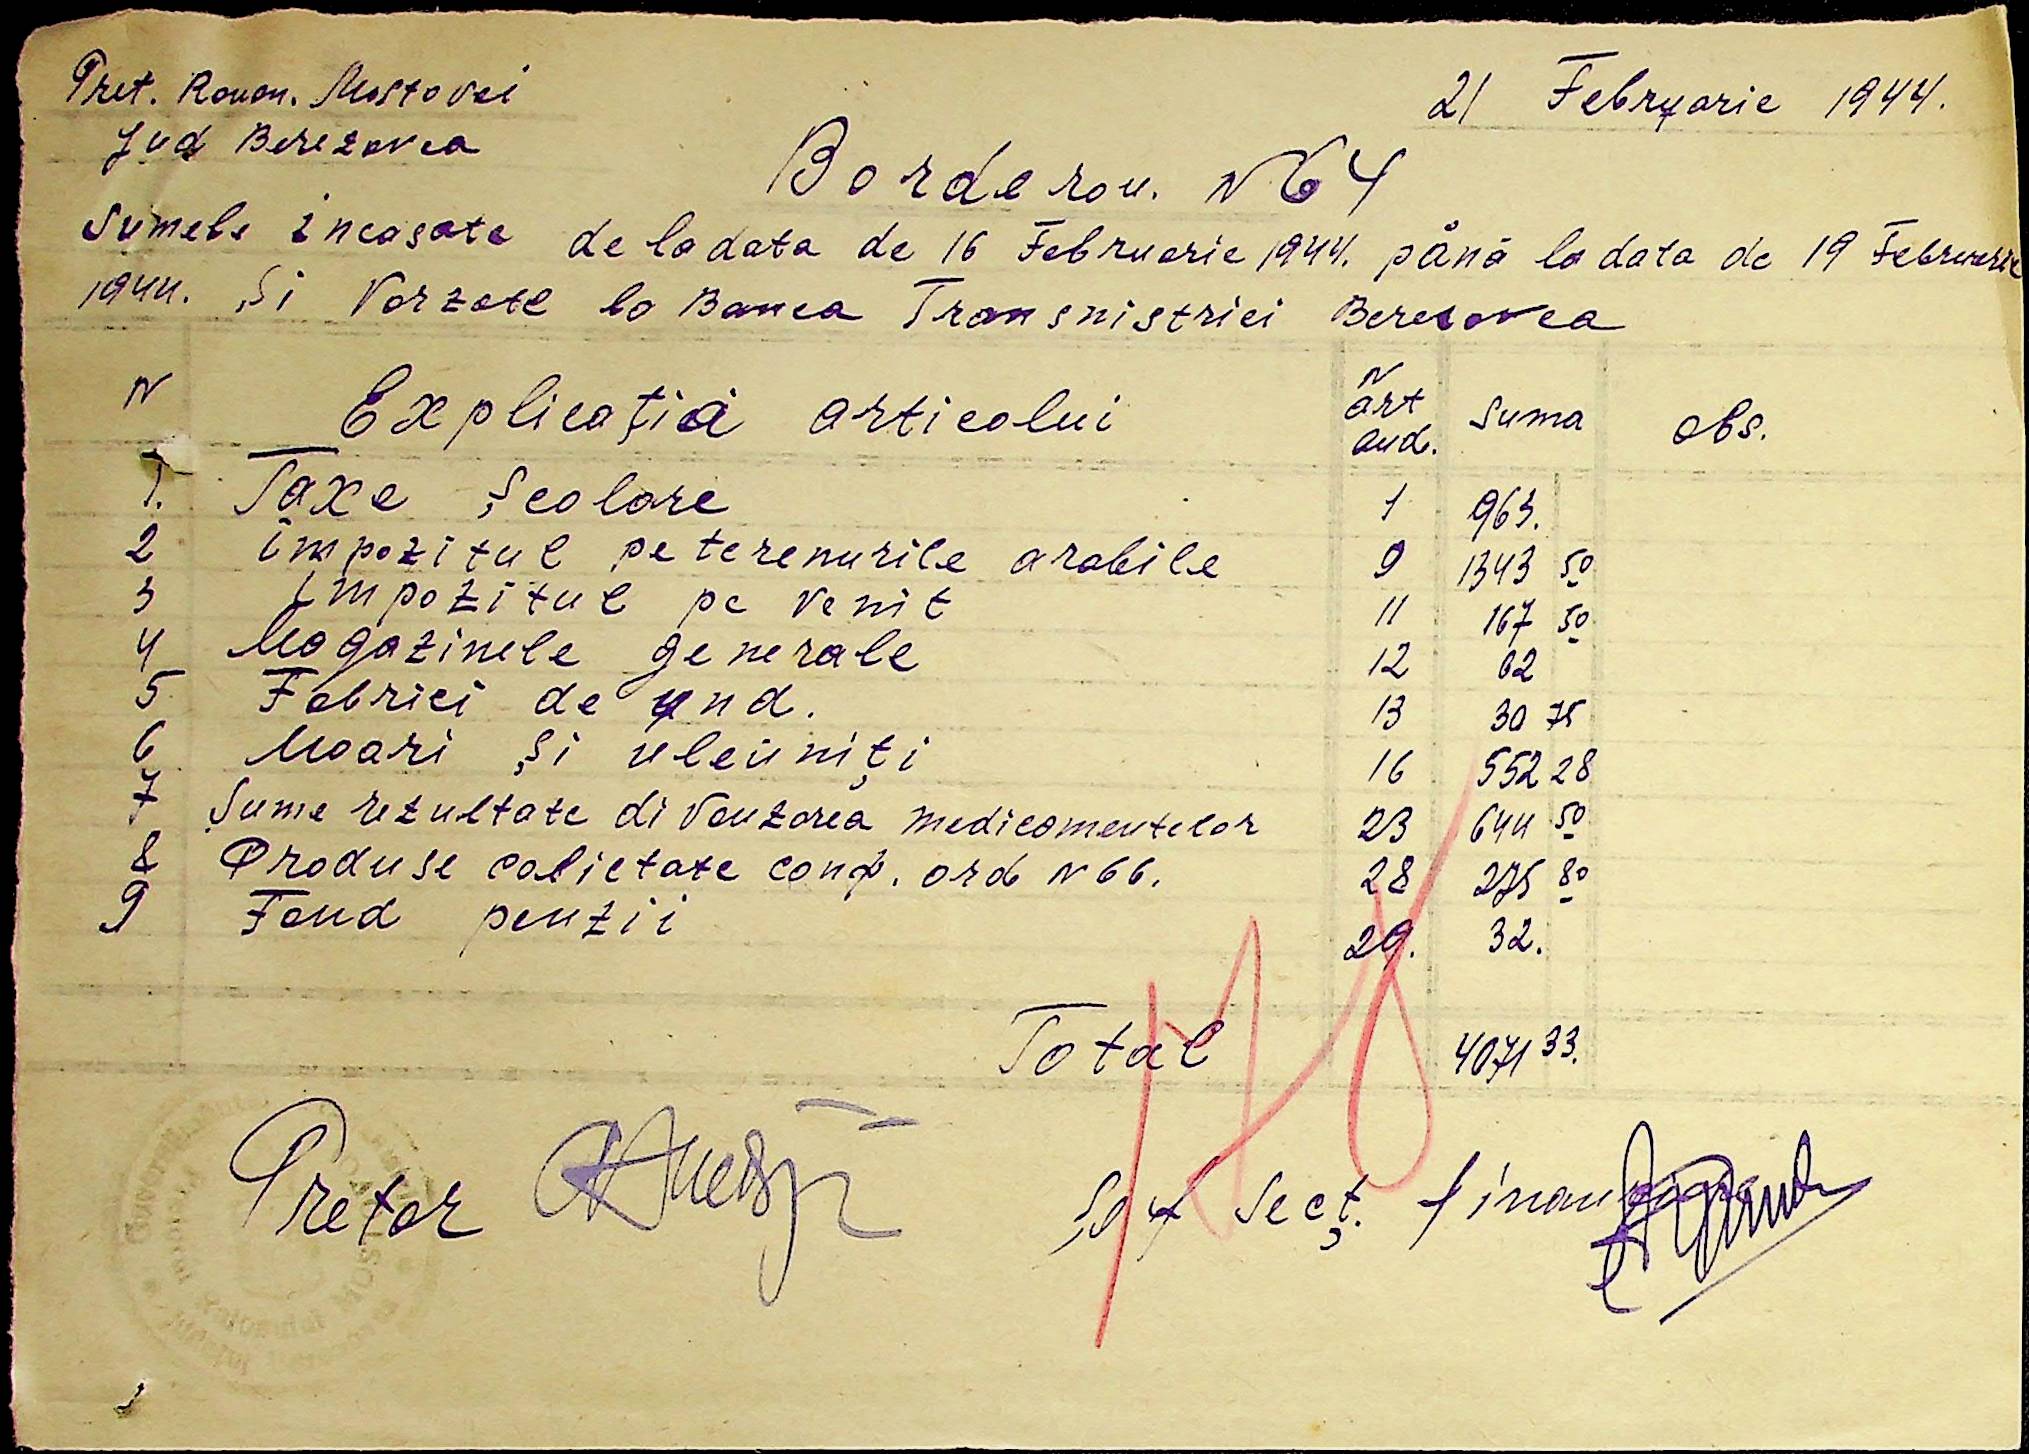 Pret. Raion. Mostovoi
21 Februarie 1944.
Jud Berezovca
Borderou. N 64
Sumele încasate de la data de 16 Februarie 1944. până la data de 19 Februarie
1944. Și Varzate la Banca Transnistriei Beresovca
N Explicația articolui N art aud. Suma obs.
1. Taxe Școlare 1 963.
2 impozitul pe terenurile arabile 9 1343 50
3 Impozitul pe venit 11 167 50
4 Magazinele generale 12 62
5 Fabrici de ind. 13 30 75
6 Moari și uleiuniți 16 552 28
7 Sume rezultate di Vanzarea medicamentelor 23 644 50
8 Produse colictate conf. ord N 66. 28 275 80
9 Fond penzii 29. 32.
Total 4071 33.
Pretor
Șef Secț.